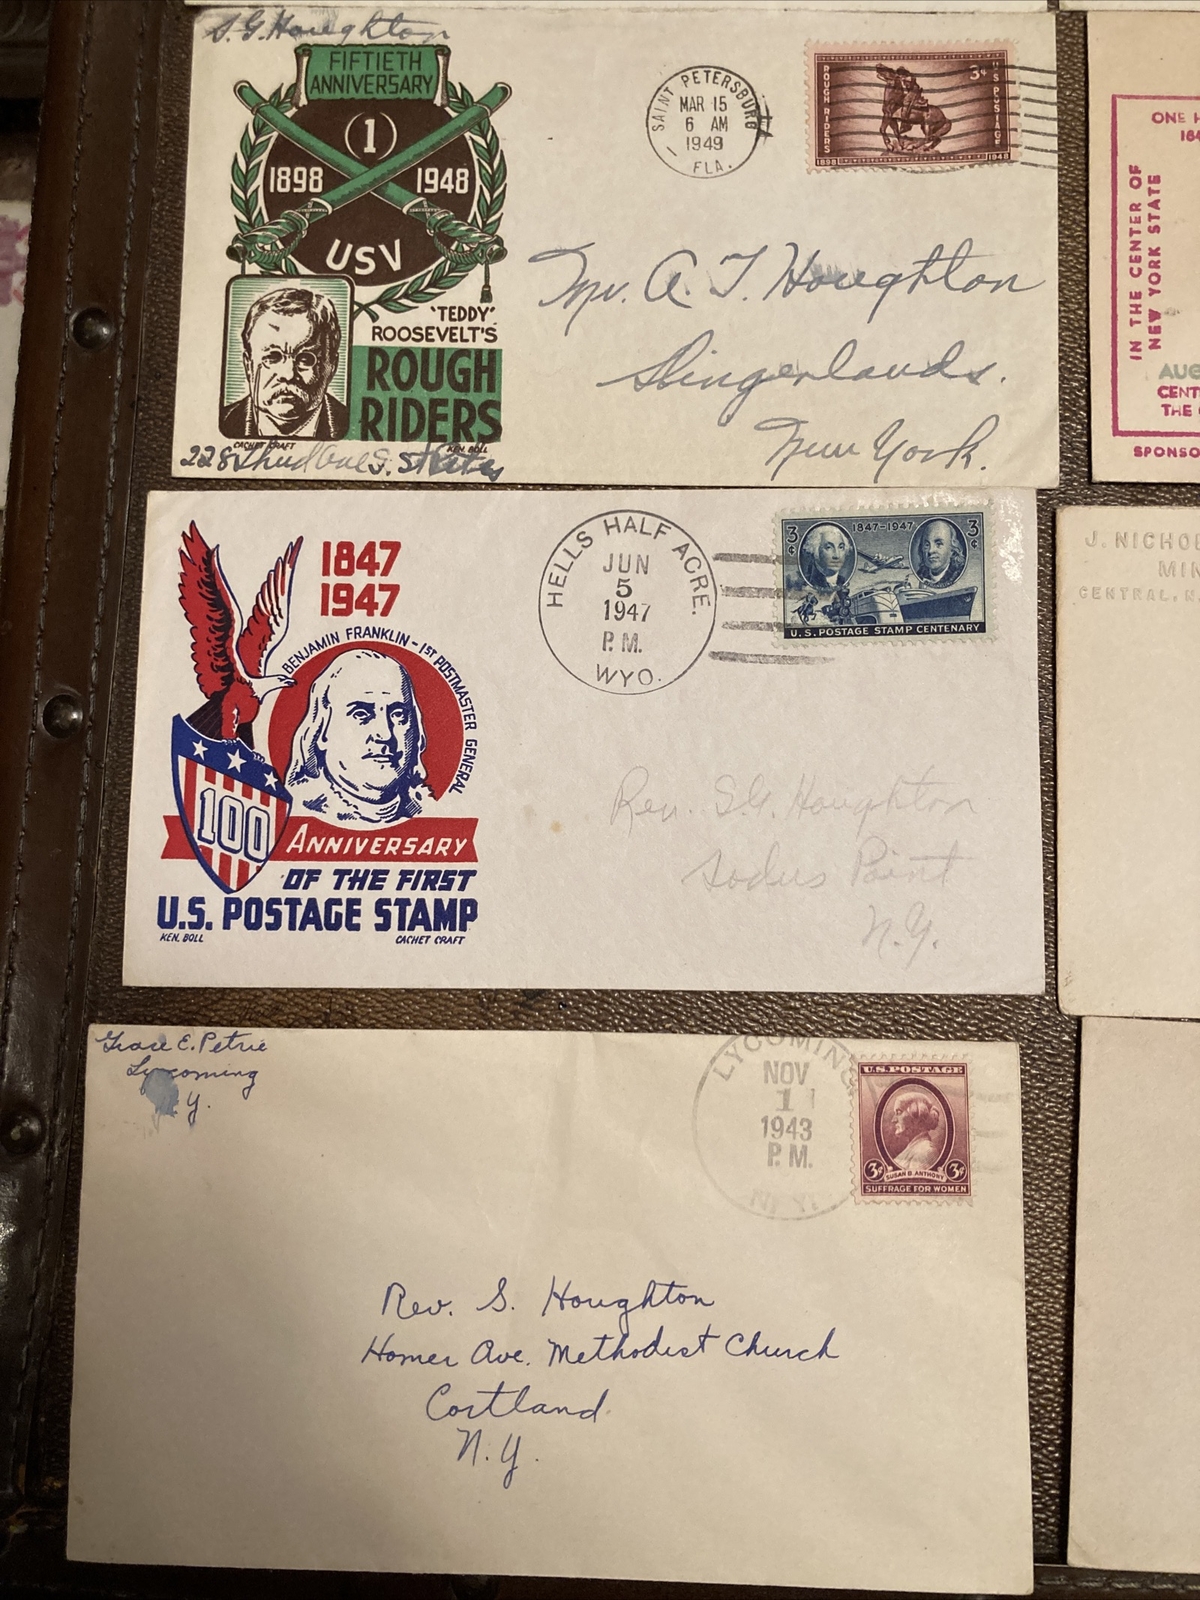 S. G. Houghton
FIFTIETH
ANNIVERSARY
(1)
1898 1948
USV
"TEDDY"
ROOSEVELT'S
ROUGH
RIDERS
CACHET CRAFT KEN BOLL
228
SAINT PETERSBURG
MAR 15
6 AM
1949
FLA.
ROUGH RIDERS
3¢
U.S. POSTAGE
1898 1948
Mr. A. T. Houghton
Slingerlands.
New York.
1847
1947
BENJAMIN FRANKLIN - 1ST POSTMASTER GENERAL
100
ANNIVERSARY
OF THE FIRST
U.S. POSTAGE STAMP
KEN. BOLL CACHET CRAFT
HELLS HALF ACRE.
JUN
5
1947
P.M.
WYO.
3¢ 1847-1947 3¢
U.S. POSTAGE STAMP CENTENARY
Rev. S.G. Houghton
Sodus Point
N.Y.
Grace E. Petrie
Lycoming
Y.
LYCOMING
NOV
1
1943
P.M.
N.Y.
U.S. POSTAGE
3¢ 3¢
SUSAN B. ANTHONY
SUFFRAGE FOR WOMEN
Rev. S. Houghton
Homer Ave. Methodist Church
Cortland
N.Y.
ONE
IN THE CENTER OF
NEW YORK STATE
AUG
CENT
THE
SPONSO
J. NICHOL
MIN
CENTRAL, N.